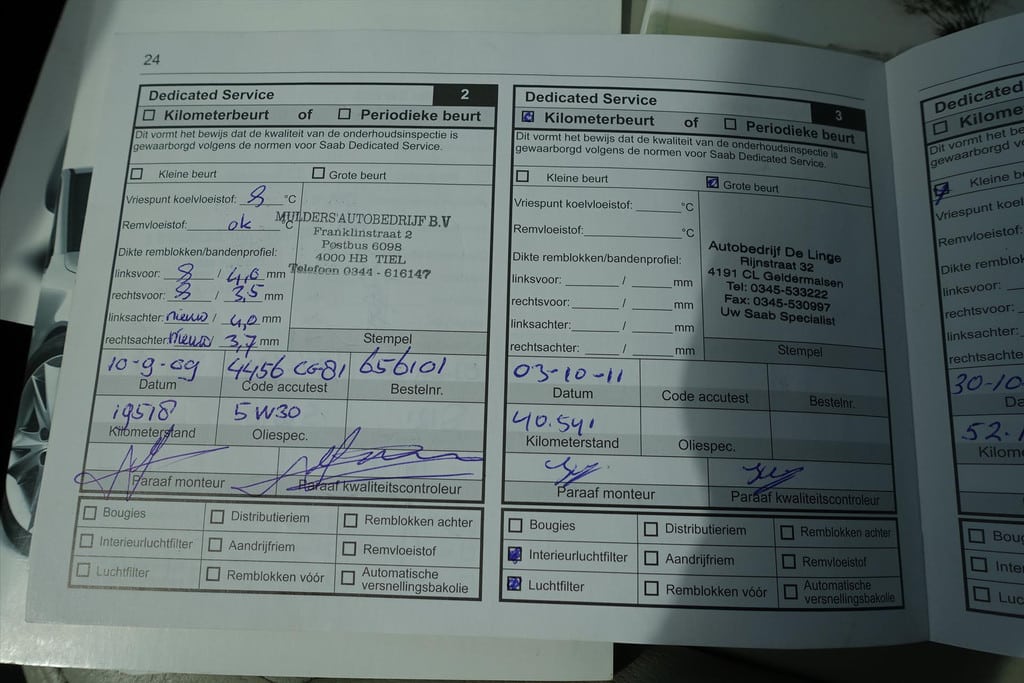 24
Dedicated Service 2
Kilometerbeurt of Periodieke beurt
Dit vormt het bewijs dat de kwaliteit van de onderhoudsinspectie is
gewaarborgd volgens de normen voor Saab Dedicated Service.
Kleine beurt Grote beurt
Vriespunt koelvloeistof: 8 °C
Remvloeistof: ok °C
Dikte remblokken/bandenprofiel:
linksvoor: 8 / 4,0 mm
rechtsvoor: 8 / 3,5 mm
linksachter: nieuw / 4,0 mm
rechtsachter: nieuw / 3,7 mm
MULDERS AUTOBEDRIJF B.V
Franklinstraat 2
Postbus 6098
4000 HB TIEL
Telefoon 0344 - 616147
Stempel
10-9-09 4456 CG81 656101
Datum Code accutest Bestelnr.
19518 5W30
Kilometerstand Oliespec.
Paraaf monteur Paraaf kwaliteitscontroleur
Bougies Distributieriem Remblokken achter
Interieurluchtfilter Aandrijfriem Remvloeistof
Luchtfilter Remblokken vóór Automatische
versnellingsbakolie
Dedicated Service 3
Kilometerbeurt of Periodieke beurt
Dit vormt het bewijs dat de kwaliteit van de onderhoudsinspectie is
gewaarborgd volgens de normen voor Saab Dedicated Service.
Kleine beurt Grote beurt
Vriespunt koelvloeistof: °C
Remvloeistof: °C
Dikte remblokken/bandenprofiel:
linksvoor: / mm
rechtsvoor: / mm
linksachter: / mm
rechtsachter: / mm
Autobedrijf De Linge
Rijnstraat 32
4191 CL Geldermalsen
Tel: 0345-533222
Fax: 0345-530997
Uw Saab Specialist
Stempel
03-10-11
Datum Code accutest Bestelnr.
40.541
Kilometerstand Oliespec.
Paraaf monteur Paraaf kwaliteitscontroleur
Bougies Distributieriem Remblokken achter
Interieurluchtfilter Aandrijfriem Remvloeistof
Luchtfilter Remblokken vóór Automatische
versnellingsbakolie
Dedicated
Kilome
Dit vormt het be
gewaarborgd vo
Kleine b
Vriespunt koelvl
Remvloeistof:
Dikte remblok
linksvoor:
rechtsvoor:
linksachter:
rechtsachter:
30-10
Da
52.1
Kilom
Boug
Inte
Luc